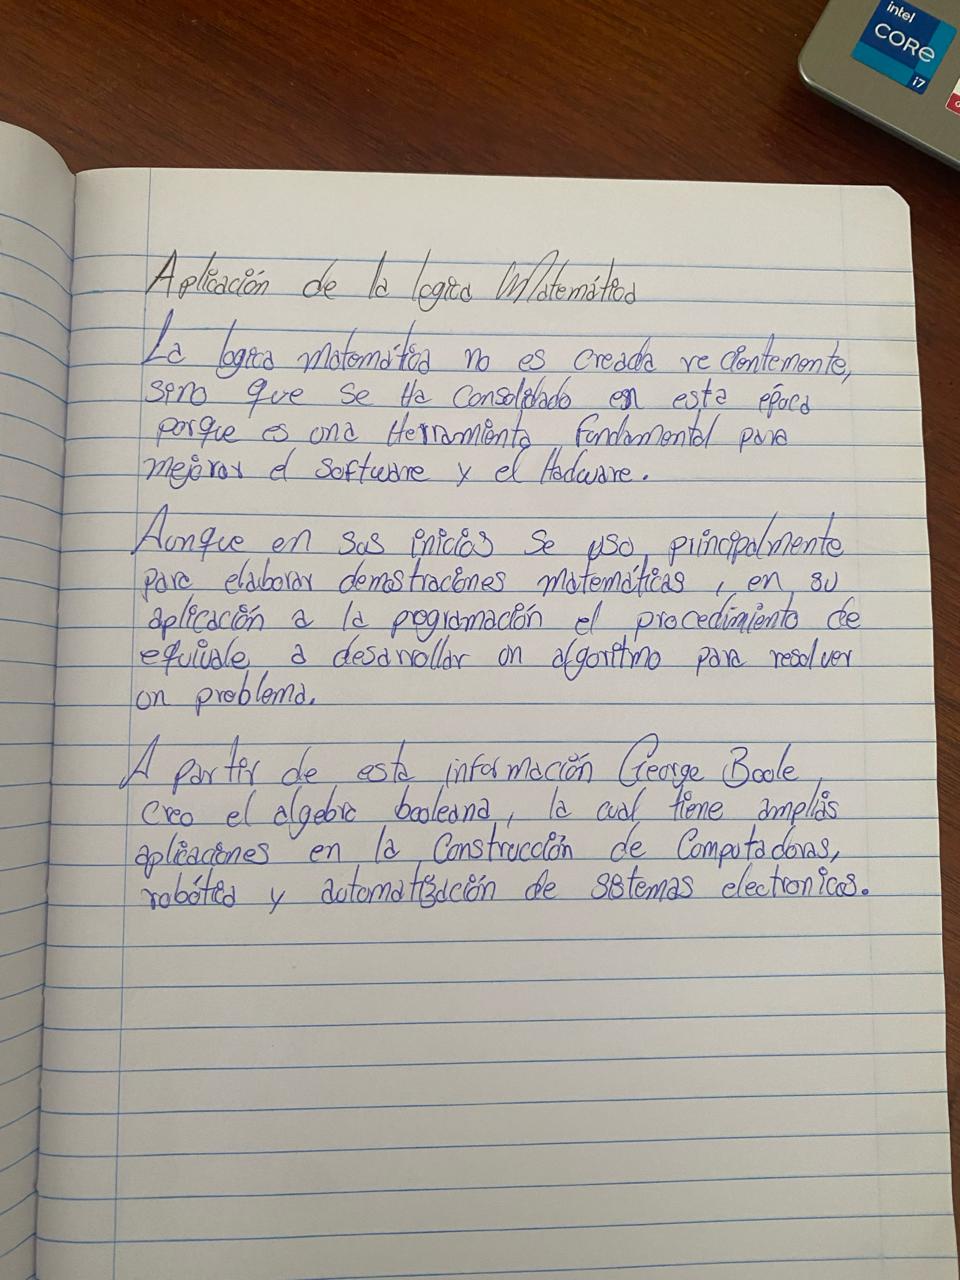 intel
CORE
i7
Aplicación de la logica Matemática
La logica matemática no es creada recientemente,
sino que se Ha consolidado en esta época
porque es una Herramienta fundamental para
mejorar el software y el Hadware.
Aunque en sus inicios se uso principalmente
para elaborar demostraciones matemáticas, en su
aplicación a la programación el procedimiento de
equivale a desarrollar un algoritmo para resolver
un problema.
A partir de esta información George Boole
creo el algebra booleana, la cual tiene amplias
aplicaciones en la Construcción de Computadoras,
robótica y automatización de sistemas electronicos.